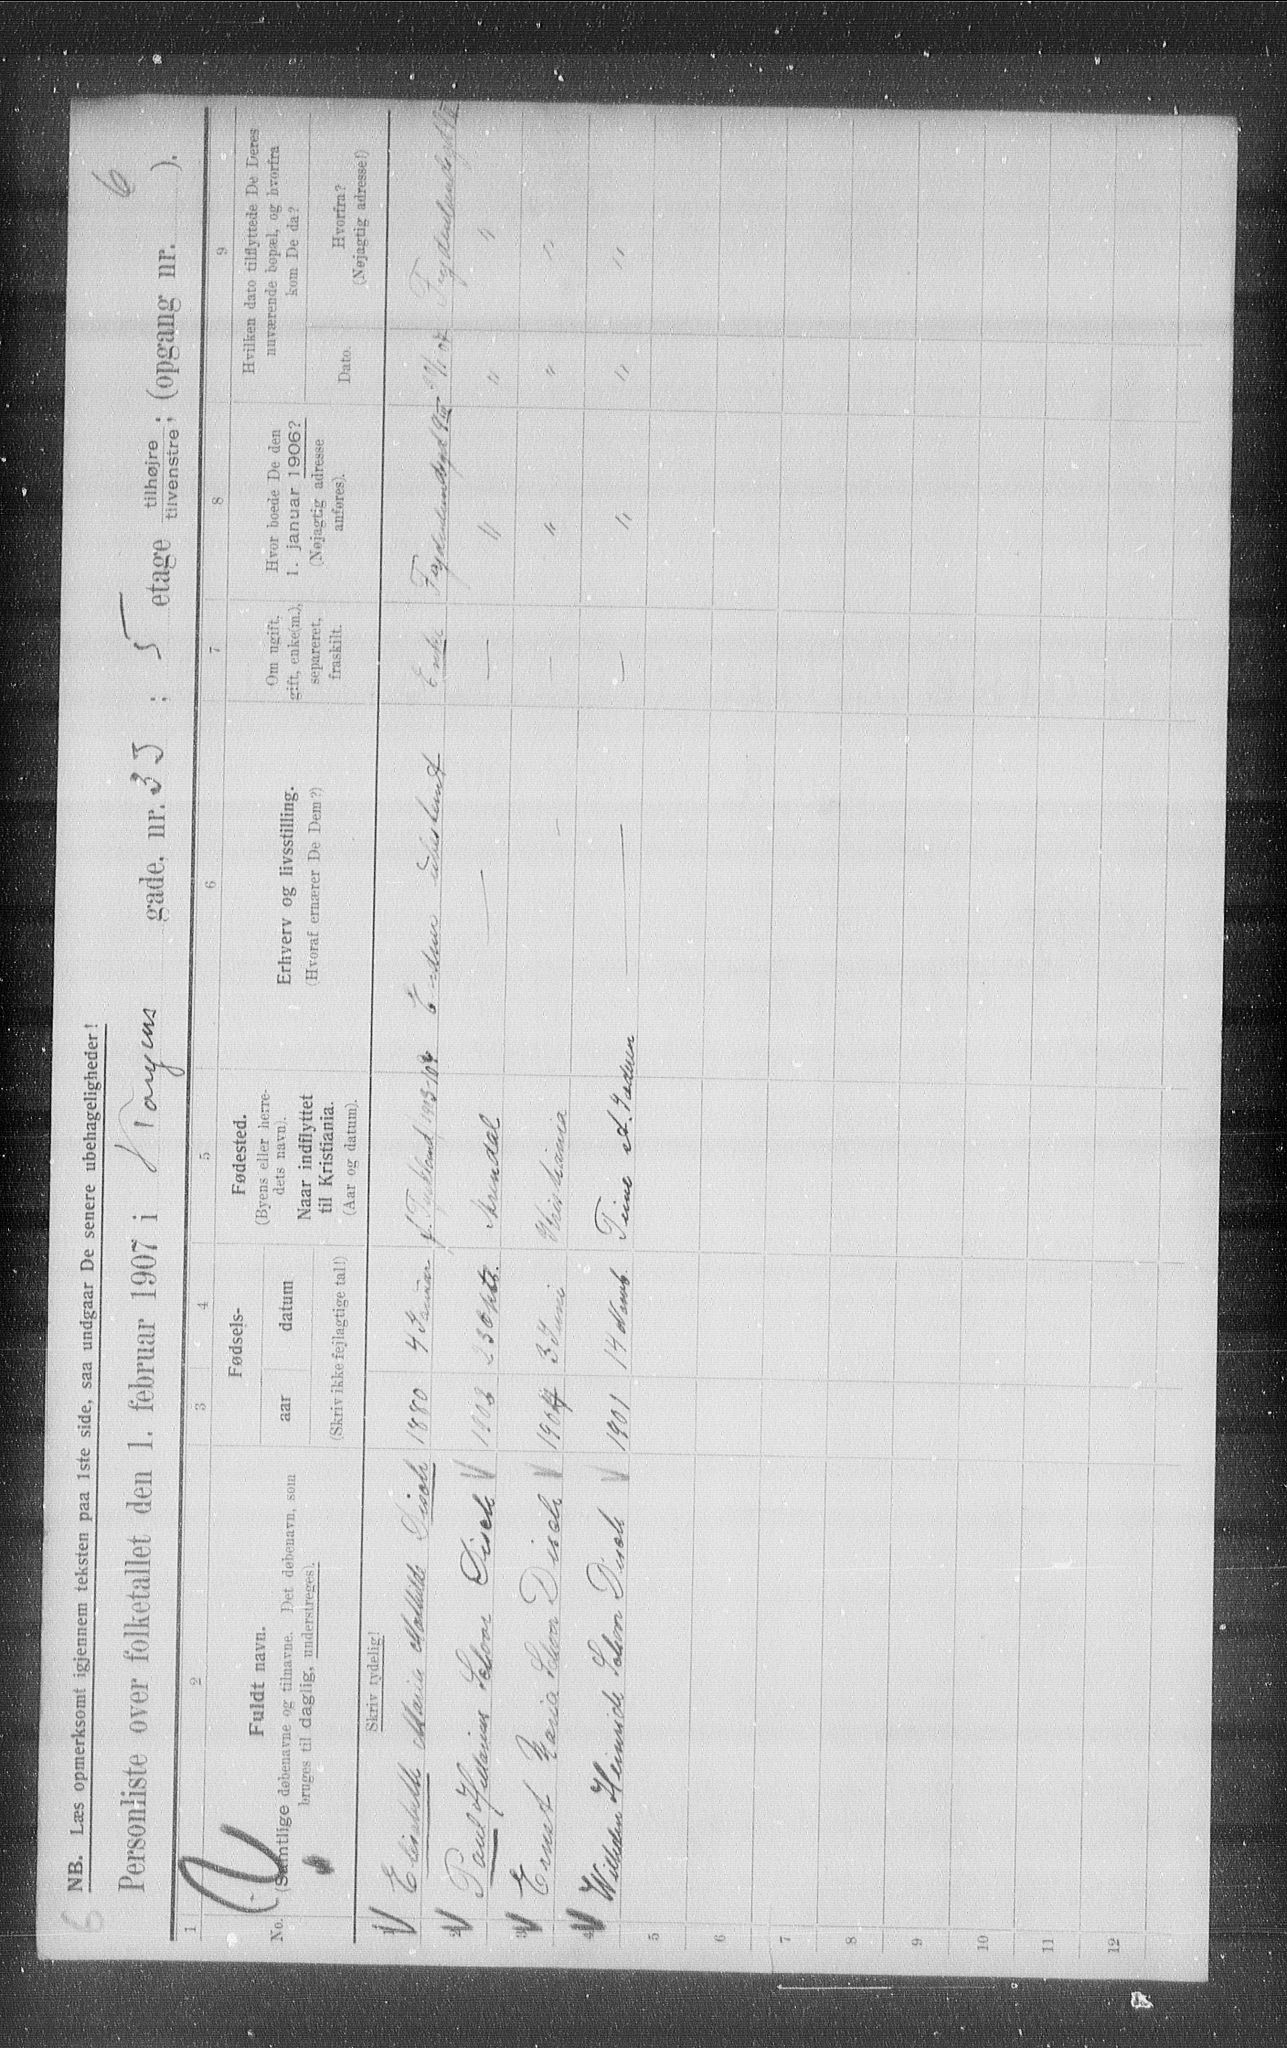 NB. Læs opmerksomt igjennem teksten paa 1ste side, saa undgaar De senere ubehageligheder!
6
Personliste over folketallet den 1. februar 1907 i Tøyens gade, nr. 33 ; 5 etage tilhøjre / tilvenstre ; (opgang nr. ).
6
1 2 3 4 5 6 7 8 9
No.
Fuldt navn.
(Samtlige døbenavne og tilnavne. Det døbenavn, som
bruges til daglig, understreges).
Fødsels-
aar datum
(Skriv ikke fejlagtige tal!)
Fødested.
(Byens eller herre-
dets navn).
Naar indflyttet
til Kristiania.
(Aar og datum).
Erhverv og livsstilling.
(Hvoraf ernærer De Dem?)
Om ugift,
gift, enke(m.),
separeret,
fraskilt.
Hvor boede De den
1. januar 1906?
(Nøjagtig adresse
anføres).
Hvilken dato tilflyttede De Deres
nuværende bopæl, og hvorfra
kom De da?
Dato.
Hvorfra?
(Nøjagtig adresse!)
Skriv tydelig!
1 Elisabeth Maria Mathilde Disch 1880 4 Januar f. Tyskland Enke
2 Paul Disch 23 Arendal — — " " "
3 Ernst Maria Disch 1904 3 Juni Kristiania — — " " "
4 Wilhelm Heinrich Disch 1901 14 Time — — " " "
5
6
7
8
9
10
11
12